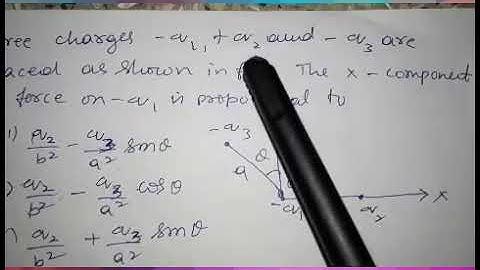 ree charges -q₁, +q₂ and -q₃ are
laced as shown in The x-component
force on -q₁ is propo nal to
1) q₂/b² - q₃/a² sinθ
) q₂/b² - q₃/a² cosθ
) q₂/b² + q₃/a² sinθ
-q₃
θ
a
-q₁
q₂
X